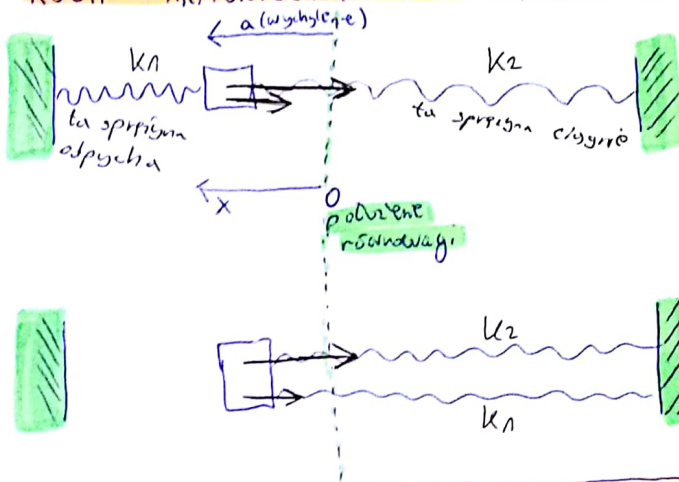 a (wychylenie)
k1
k2
ta sprężyna
odpycha
ta sprężyna ciągnie
x
0
położenie
równowagi
k2
k1